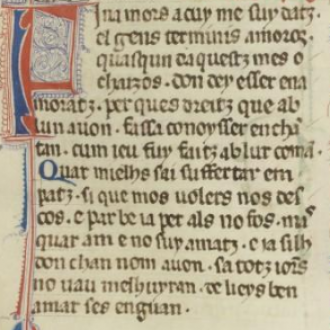 Fin amors a cuy me suy datz.
el gens terminis amoros.
quasqun daquestz mes o
chaizos. don dey esser ena
moratz. per ques dreitz que ab
un auon. fassa conoysser en chā
tan. cum ieu suy faitz ab lur comā.
Quar mielhs sai suffertar em
patz. si que mos volers nos des
cos. e par be ia per als no fos. mas
quar am e no suy amatz. e ia silh
don chan nom auon. sa totz iorns
no uau mielhuyran. de lieys ben
amar ses enguan.